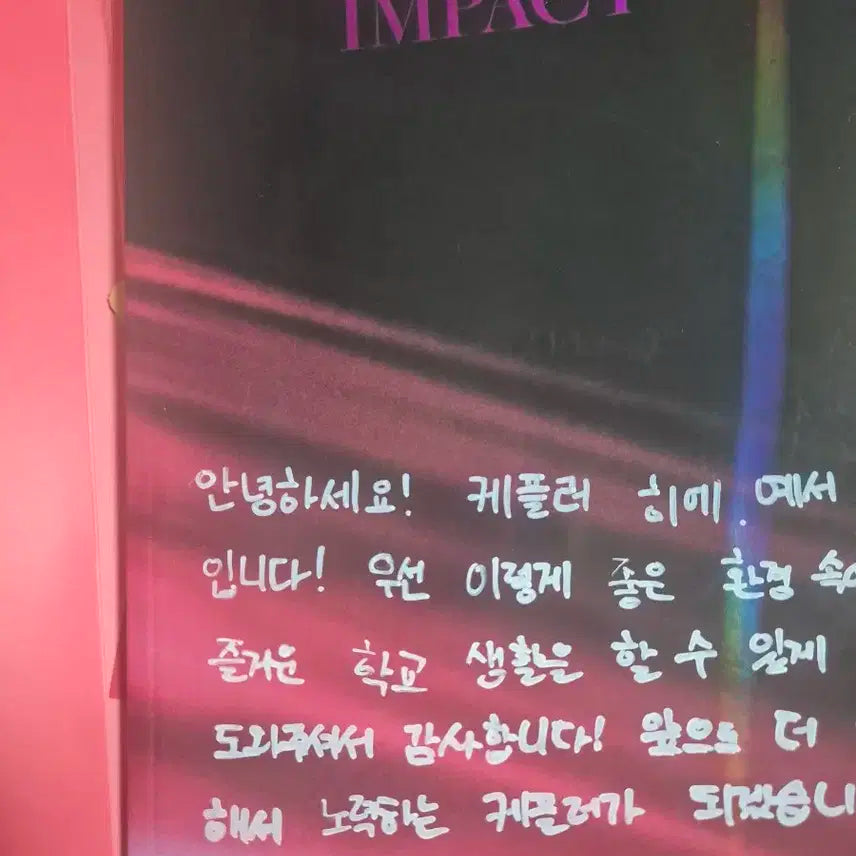 IMPACT
안녕하세요! 케플러 히에. 예서
입니다! 우선 이렇게 좋은 환경
즐거운 학교 생활은 할 수 있게
도와주셔서 감사합니다! 앞으로 더
해서 노력하는 케플러가 되겠습니